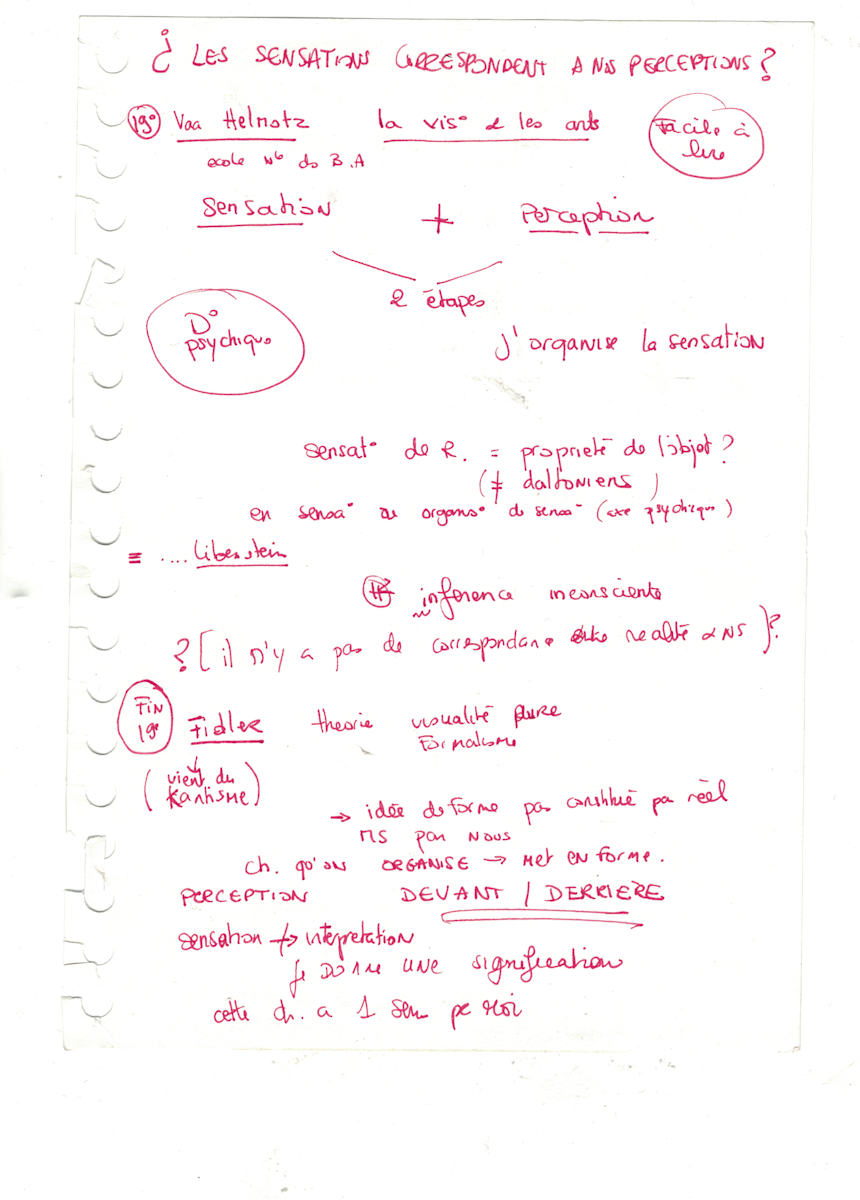 ¿ LES SENSATIONS CORRESPONDENT A NOS PERCEPTIONS ?
19° Vaa Helmotz la vis° & les arts
Facile à lire
ecole des B.A
Sensation + Perception
2 étapes
D° psychique
J'organise la sensation
Sensat° de R. = proprieté de l'objet ?
(≠ daltoniens)
en sensa° organs° de sensa° (axe psychique)
≡ .... Libenstein
inference inconsciente
? [il n'y a pas de correspondance entre realité & NS] ?
FIN 19° Fidler theorie visualité pure
Formalisme
(vient du Kantisme)
→ idée de forme pas constitué par réel
MS par NOUS
ch. qu'on ORGANISE → met en forme.
PERCEPTION DEVANT / DERRIERE
sensation → interpretation
je DONNE UNE signification
cette ch. a 1 sens pr moi